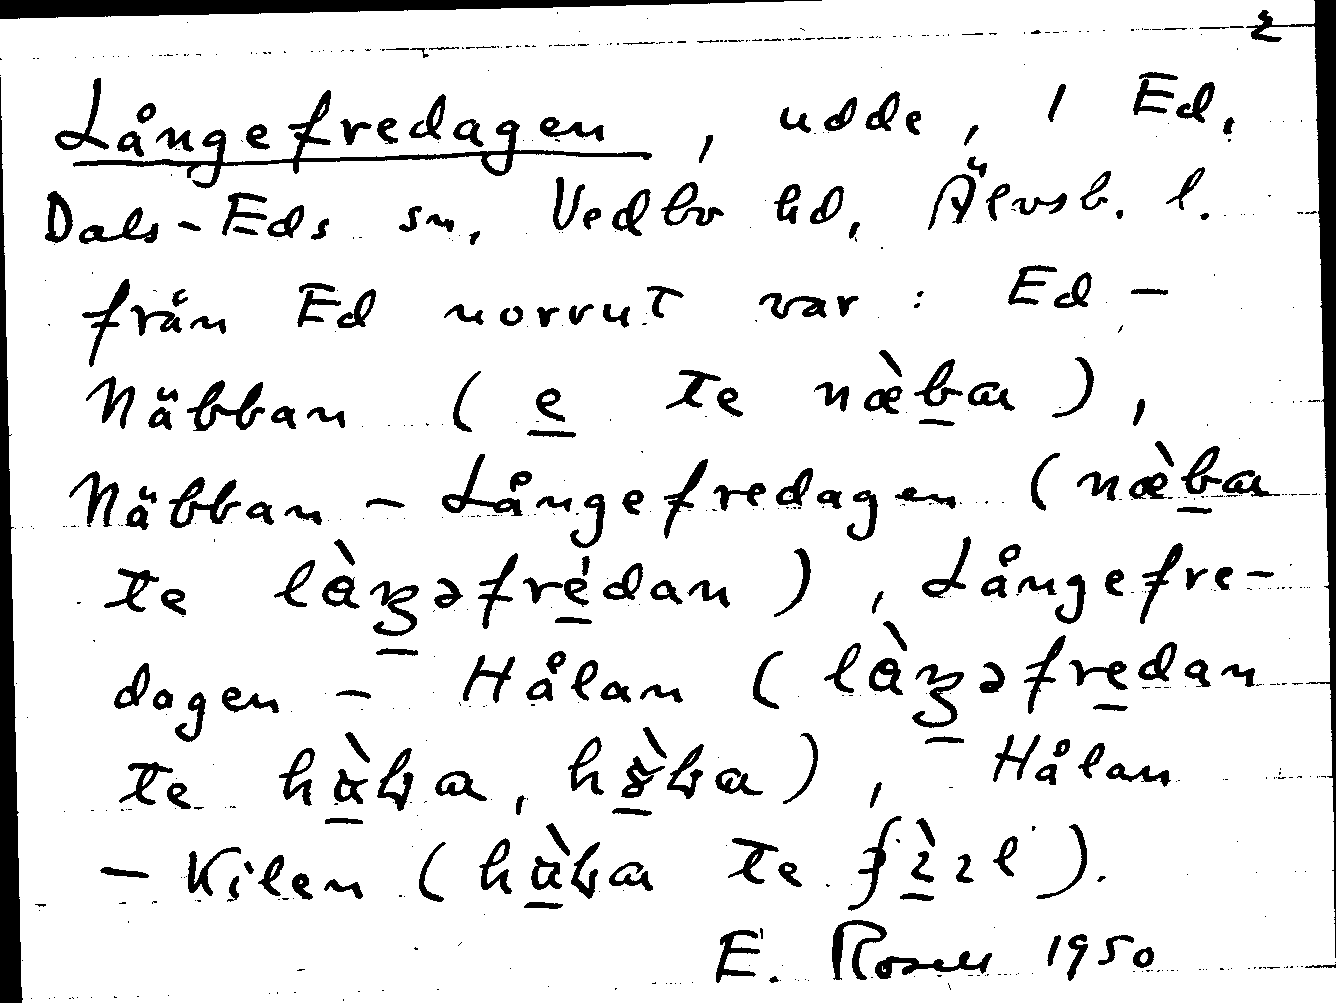 2
Långefredagen, udde, 1 Ed,
Dals-Eds sn, Vedbo hd, Älvsb. l.
från Ed norrut var: Ed -
Näbban (e te næ̀ba),
Näbban - Långefredagen (næ̀ba
te
frédan), Långefre-
dagen - Hålan (
te
), Hålan
- Kilen (
te
).
E. Rosell 1950